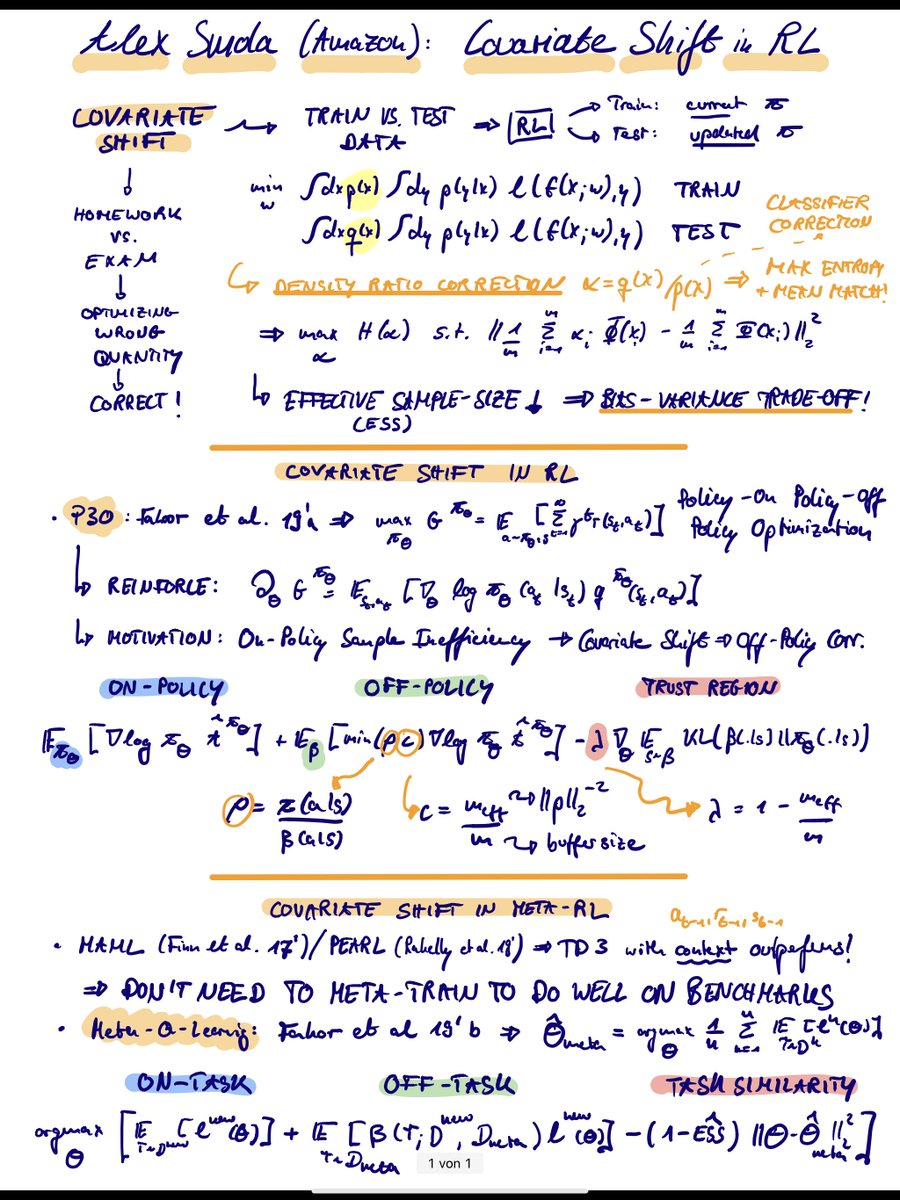 Alex Smola (Amazon): Covariate Shift in RL
COVARIATE SHIFT → TRAIN VS. TEST DATA ⇒ RL → Train: current π
→ Test: updated π
↓
HOMEWORK VS. EXAM
↓
OPTIMIZING WRONG QUANTITY
↓
CORRECT!
min_w ∫dx p(x) ∫dy p(y|x) l(f(x;w),y) TRAIN
∫dx q(x) ∫dy p(y|x) l(f(x;w),y) TEST
CLASSIFIER CORRECTION
↳ DENSITY RATIO CORRECTION α = q(x)/p(x) ⇒ MAX ENTROPY + MEAN MATCH!
⇒ max_α H(α) s.t. ||1/m Σ_{i=1}^m α_i Φ(x_i) - 1/m Σ_{i=1}^m Φ(x_i)||_2^2
↳ EFFECTIVE SAMPLE-SIZE ↓ ⇒ BIAS-VARIANCE TRADE-OFF!
(ESS)
COVARIATE SHIFT IN RL
· P3O: Fakoor et al. 19'a ⇒ max_{π_θ} G^{π_θ} = E [Σ γ^t r(s_t,a_t)] Policy-On Policy-Off
Policy Optimization
↳ REINFORCE: ∂_θ G^{π_θ} = E_{s_t,a_t} [∇_θ log π_θ (a_t|s_t) q^{π_θ}(s_t,a_t)]
↳ MOTIVATION: On-Policy Sample Inefficiency → Covariate Shift ⇒ Off-Policy Corr.
ON-POLICY OFF-POLICY TRUST REGION
E_{π_θ} [∇log π_θ Â^{π_θ}] + E_β [min(ρ,c) ∇log π_θ Â^{π_θ}] - λ ∇_θ E_{s~β} KL(β(.|s)||π_θ(.|s))
ρ = π(a|s)/β(a|s) c = m_eff/m λ = 1 - m_eff/m
→ ||ρ||_2^{-2}
→ buffer size
COVARIATE SHIFT IN META-RL
a_{t-1}, r_{t-1}, s_{t-1}
· MAML (Finn et al. 17')/PEARL (Rakelly et al. 19') ⇒ TD3 with context outperforms!
⇒ DON'T NEED TO META-TRAIN TO DO WELL ON BENCHMARKS
· Meta-Q-Learning: Fakoor et al 19'b ⇒ θ̂_meta = argmax_θ 1/n Σ_{k=1}^n E_{τ~D^k} [l^k(θ)]
ON-TASK OFF-TASK TASK SIMILARITY
argmax_θ [E_{τ~D^new} [l^new(θ)] + E_{τ~D_meta} [β(τ; D^new, D_meta) l^new(θ)] - (1-ESŜ) ||θ-θ̂_meta||_2^2]
1 von 1